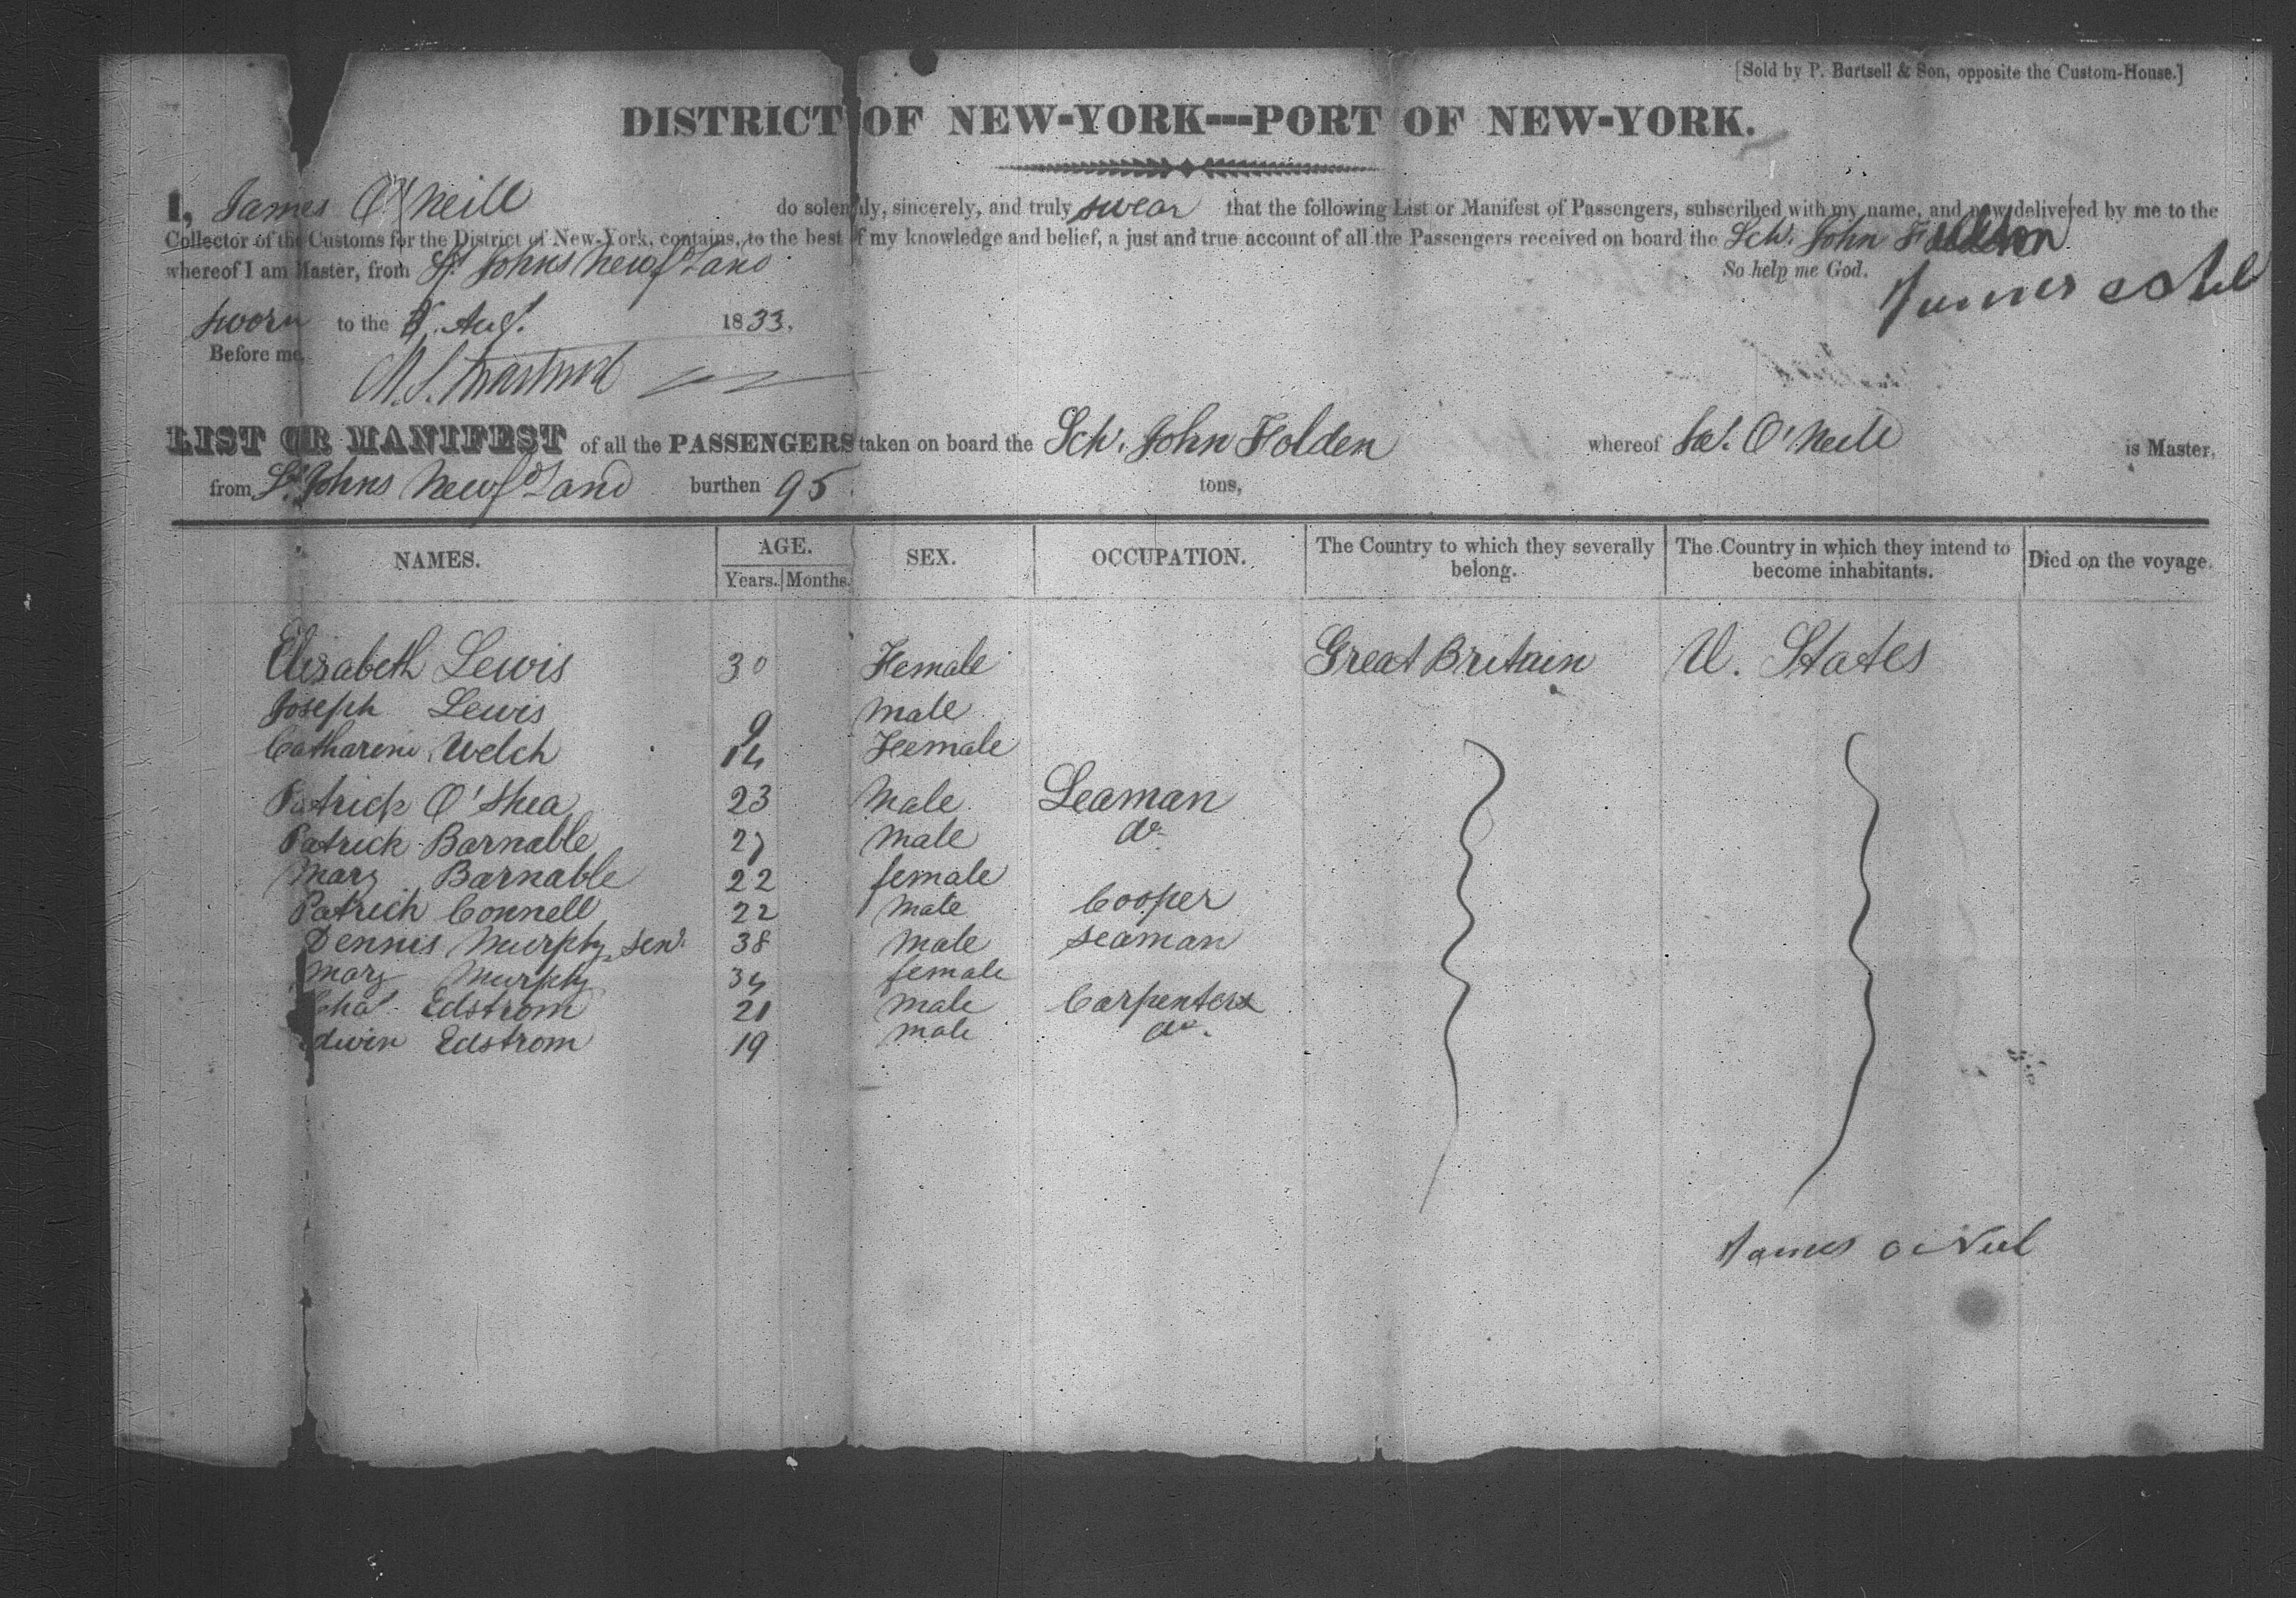 [Sold by P. Bartsell & Son, opposite the Custom-House.]
DISTRICT OF NEW-YORK---PORT OF NEW-YORK.
I, James O'Neill do solemnly, sincerely, and truly swear that the following List or Manifest of Passengers, subscribed with my name, and now delivered by me to the
Collector of the Customs for the District of New-York, contains, to the best of my knowledge and belief, a just and true account of all the Passengers received on board the Schr. John
whereof I am Master, from St Johns Newfd Land So help me God.
James
sworn to the Aug. 1833.
Before me,
LIST OR MANIFEST of all the PASSENGERS taken on board the Schr. John Holden whereof Jas. O'Neill is Master,
from St Johns Newfd Land burthen 95 tons,
NAMES. AGE. SEX. OCCUPATION. The Country to which they severally belong. The Country in which they intend to become inhabitants. Died on the voyage.
Years. Months.
Elizabeth Lewis 30 Female Great Britain U. States
Joseph Lewis 9 Male
Catharine Welch 14 Female
Patrick O'Shea 23 Male Seaman
Patrick Barnable 27 Male do
Mary Barnable 22 female
Patrick Connell 22 Male Cooper
Dennis Murphy Senr 38 Male seaman
Mary Murphy 34 female
Chas. Edstrom 21 Male Carpenters
Edwin Edstrom 19 male do.
James O Neil